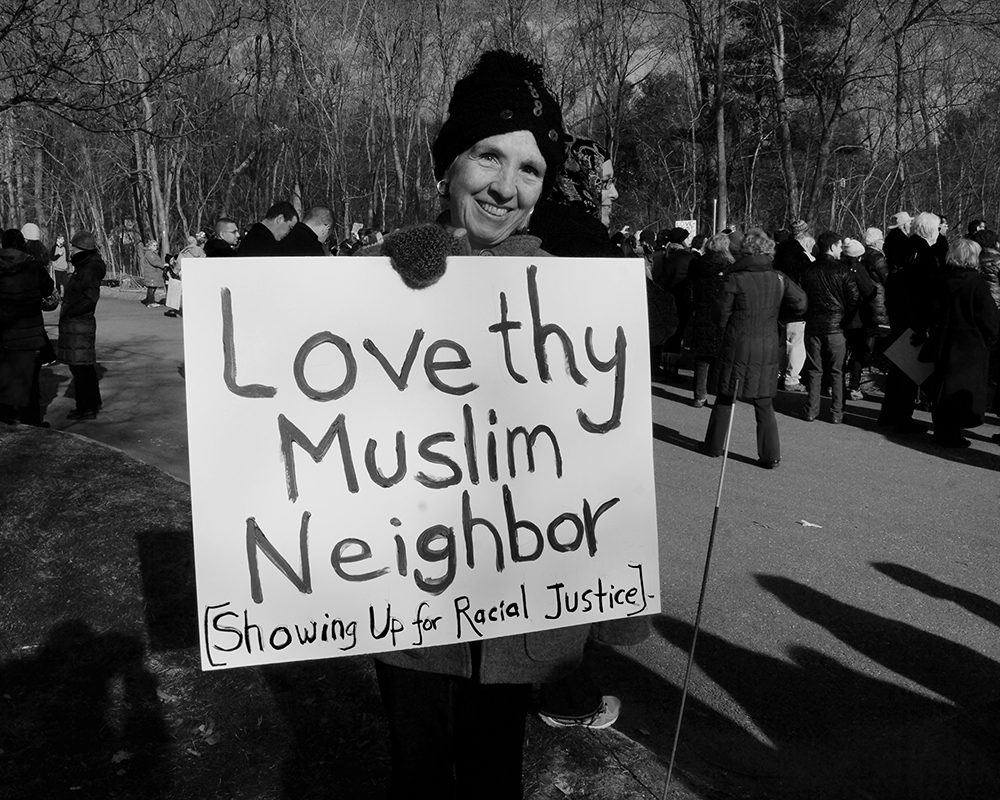 Love thy
Muslim
Neighbor
[Showing Up for Racial Justice].